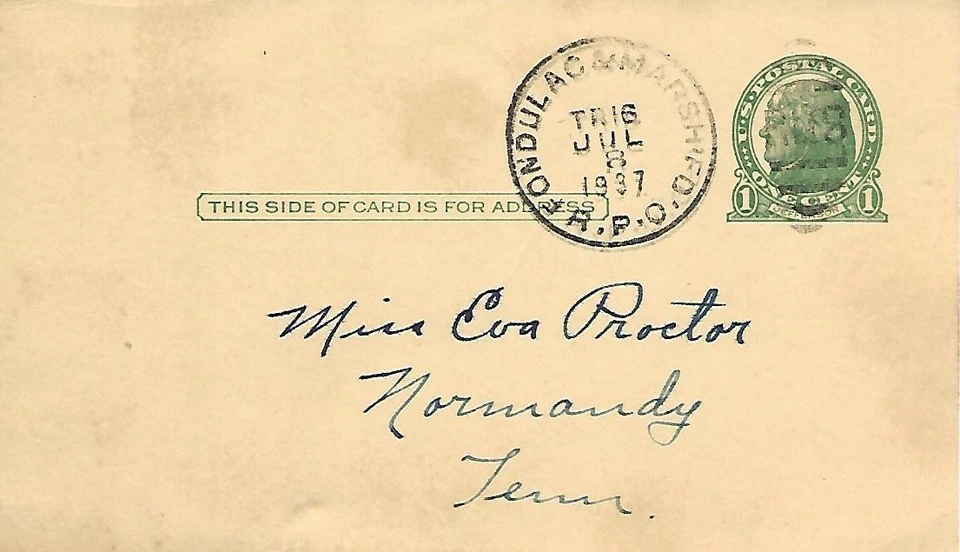 FONDULAC & MARSH'FD. R.P.O.
TR16
JUL
8
1937
U·S·POSTAL CARD
ONE CENT
1 JEFFERSON 1
THIS SIDE OF CARD IS FOR ADDRESS
Miss Eva Proctor
Normandy
Tenn.